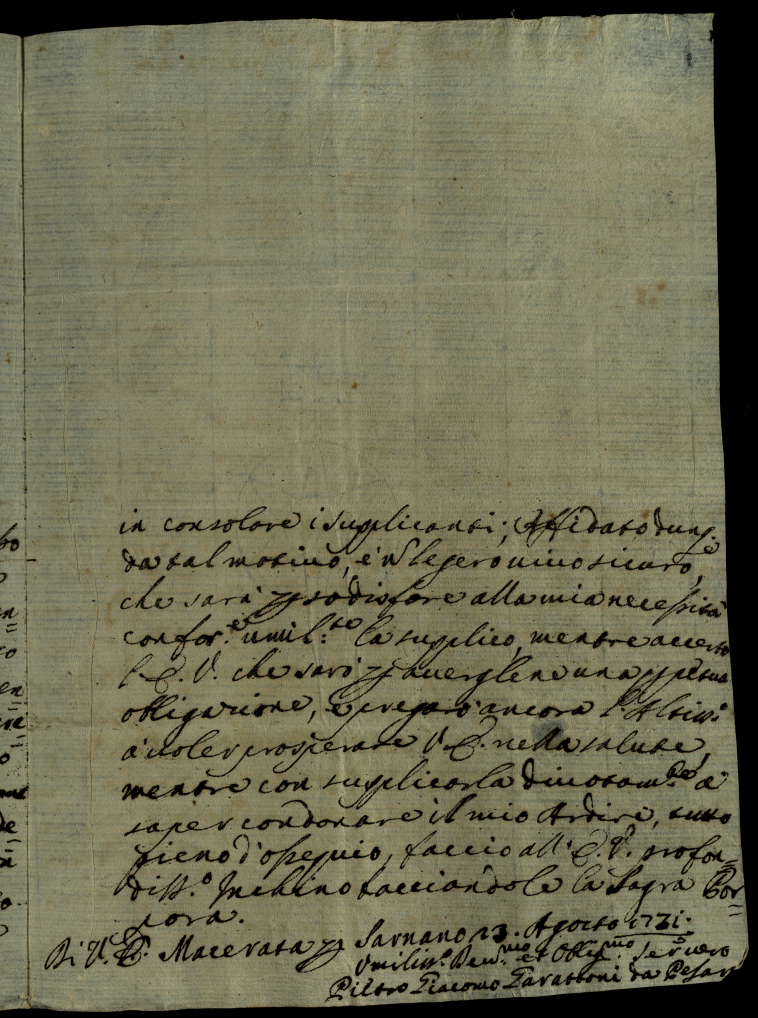 in consolare i supplicanti; Affidato dunq.e
da tal motivo, e nel legero vivo sicuro,
che sarà p sodisfare alla mia necessità
confor.e umil.te la supplico, mentre accerto
l'E. V. che sarò p averglene una ppetua
obligazione, e pregarò ancora l'Altiss.o
à voler prosperare V. E. nella salute,
mentre con supplicarla divotam.te à
saper condonare il mio Ardire, tutto
pieno d'ossequio, faccio all'E. V. profon=
diss.o Inchino bacciandole la Sagra Por=
pora.
Di V. E. Macerata p Sarnano 23. Agosto 1731.
Umiliss.o Dev.mo et Oblig.mo Ser. vero
Pietro Giacomo Garattoni da Pesaro